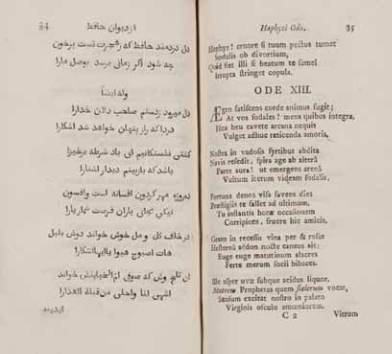 34 از دیوان حافظ
دل دردمند حافظ که ز هجرت تست پرخون
چه شود اگر زمانی برسد بوصل مارا
وله ایضا
دل میرود ز دستم صاحب دلان خدارا
دردا که راز پنهان خواهد شد اشکارا
کشتی شکستکانیم ای باد شرطه برخیز
باشد که بازبینم دیدار اشنارا
ده روزه مهر گردون افسانه است وافسون
نیکی بجای یاران فرصت شمار یارا
در حلقه کل و مل خوش خواند دوش بلبل
هات الصبوح هبوا یا ایها السکارا
ان تلخ وش که صوفی ام الخبایثش خواند
اشهی لنا واحلی من قبلة العذارا
Haphyzi Ode. 35
Haphyz! cruore si tuum pectus tumet
Sodalis ob divortium,
Quid fiet illi si beatum te simel
Irrupta stringet copula.
ODE XIII.
Ægro fatiscens corde animus fugit;
At vos sodales! mens quibus integra,
Heu heu cavete arcana nequis
Vulget adhuc reticenda amoris.
Nostra in vadosis fyrtibus abdita
Navis resedit, spira age ab altera
Parte aura! ut emergens arena
Vultum iterum videam sodalis.
Fortuna denos visa favens dies
Præstigiis te fallet ad ultimam,
Tu instantis horæ occasionem
Corripiens, fruere hic amicis.
Cœtu in recessu vina per & rosas
Hesterna ædon nocte canens ait:
Euge euge matutinum afferte
Ferte merum socii bibaces.
Ille asper uvæ subque acidus liquor,
Matrem Propheta quem scelerum vocat,
Suavium excitat nostro in palato
Virginis osculo amœniorem.
C 2 Vitrum